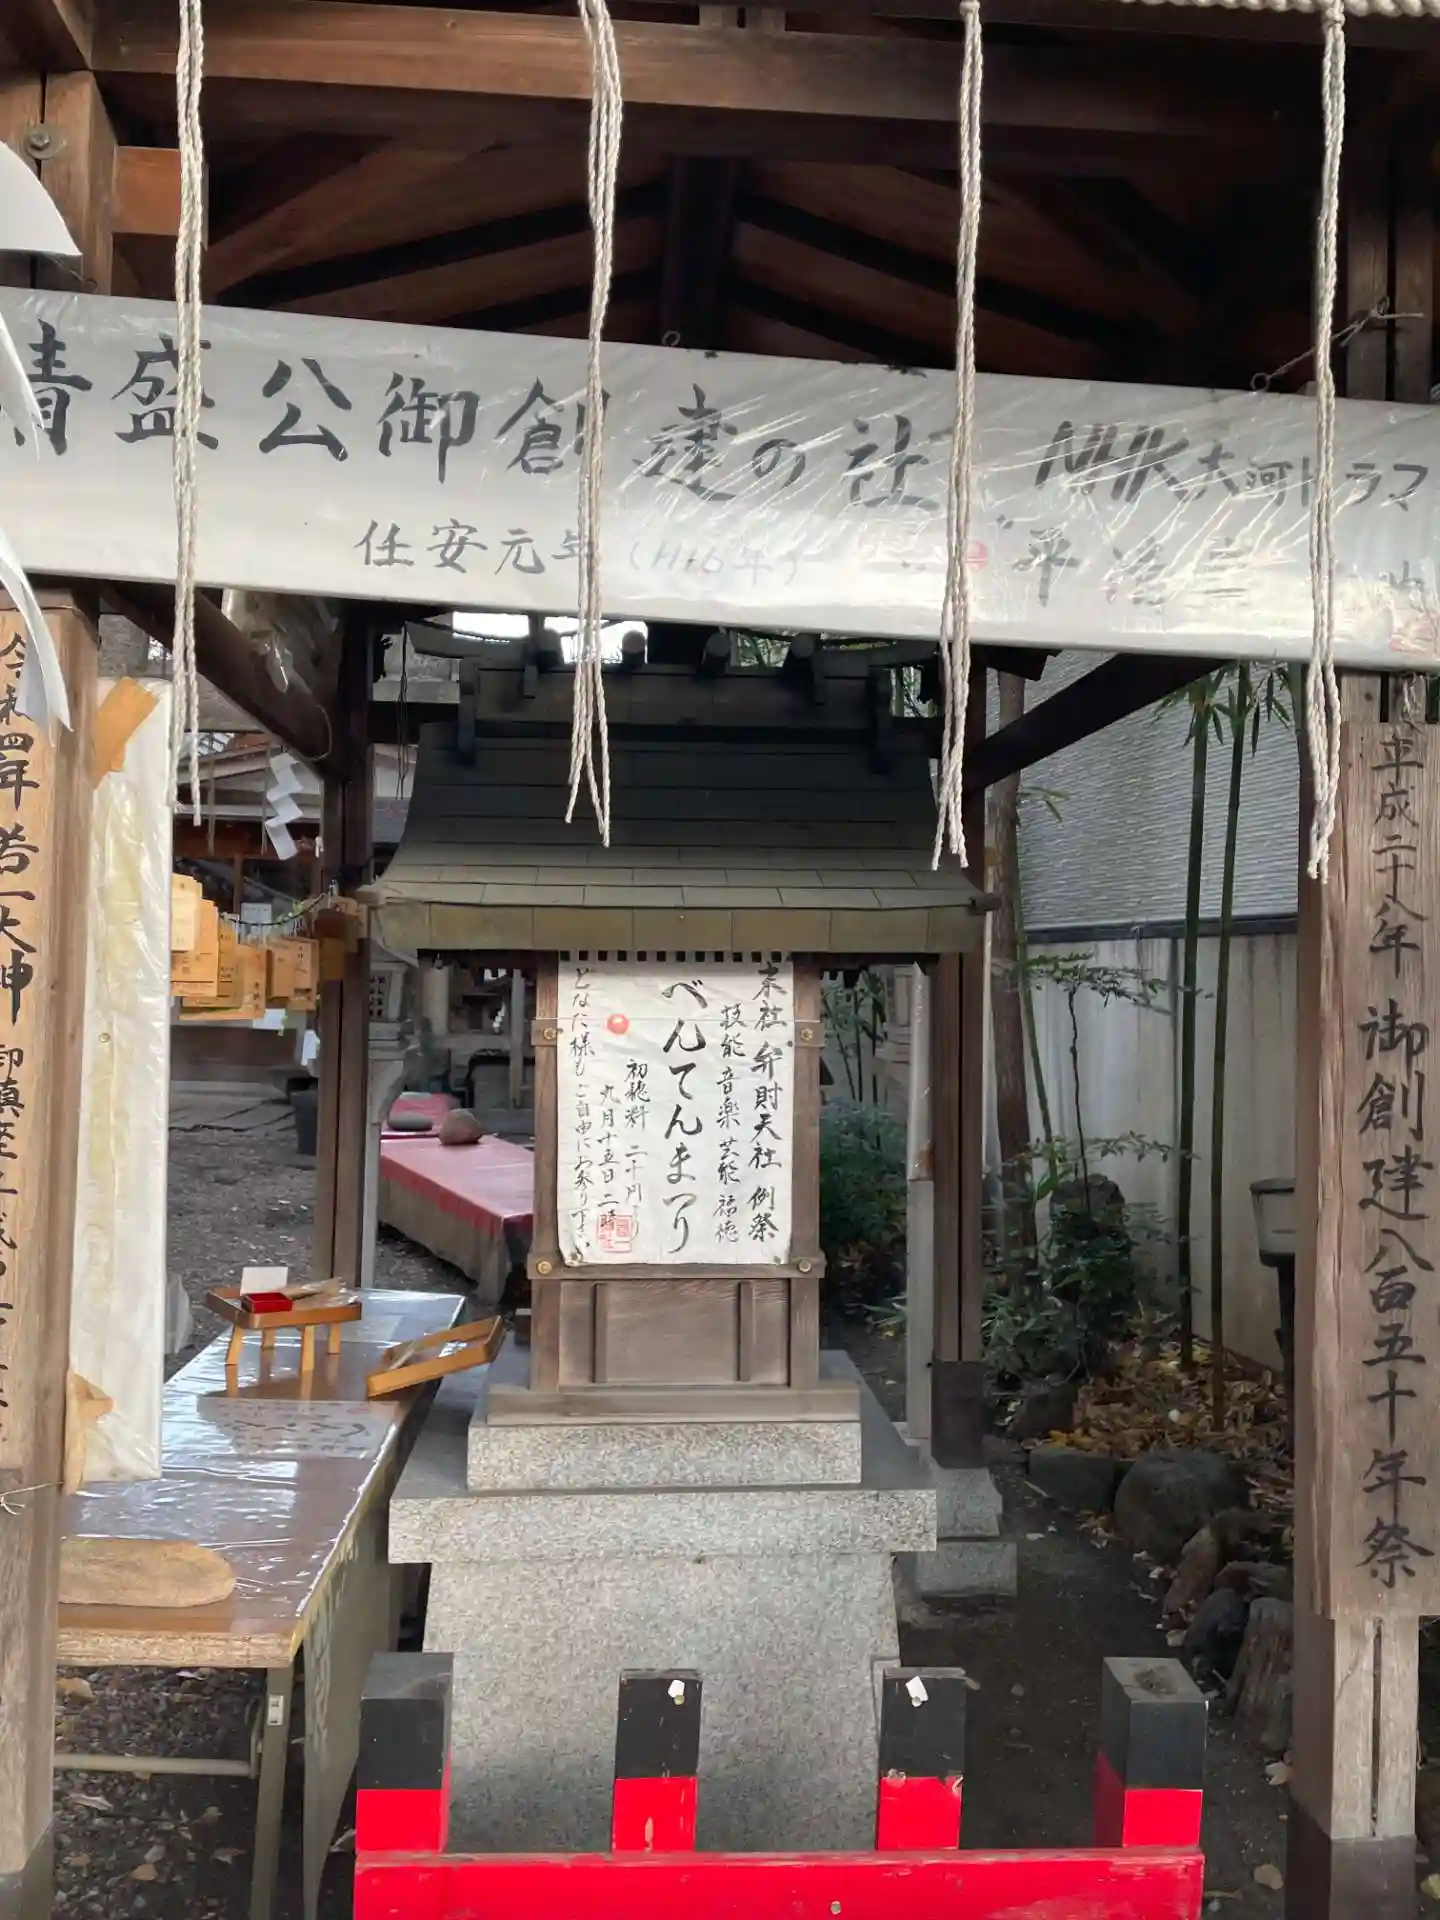 清盛公御創建の社 NHK大河ドラマ
任安元年(1116年)
平清
令和四年 若一大神 御鎮座
平成二十八年 御創建八百五十年祭
末社 弁財天社 例祭
技能 音楽 芸能 福徳
べんてんまつり
初穂料 二十円より
九月十五日 二時
どなた様もご自由にお参り下さい